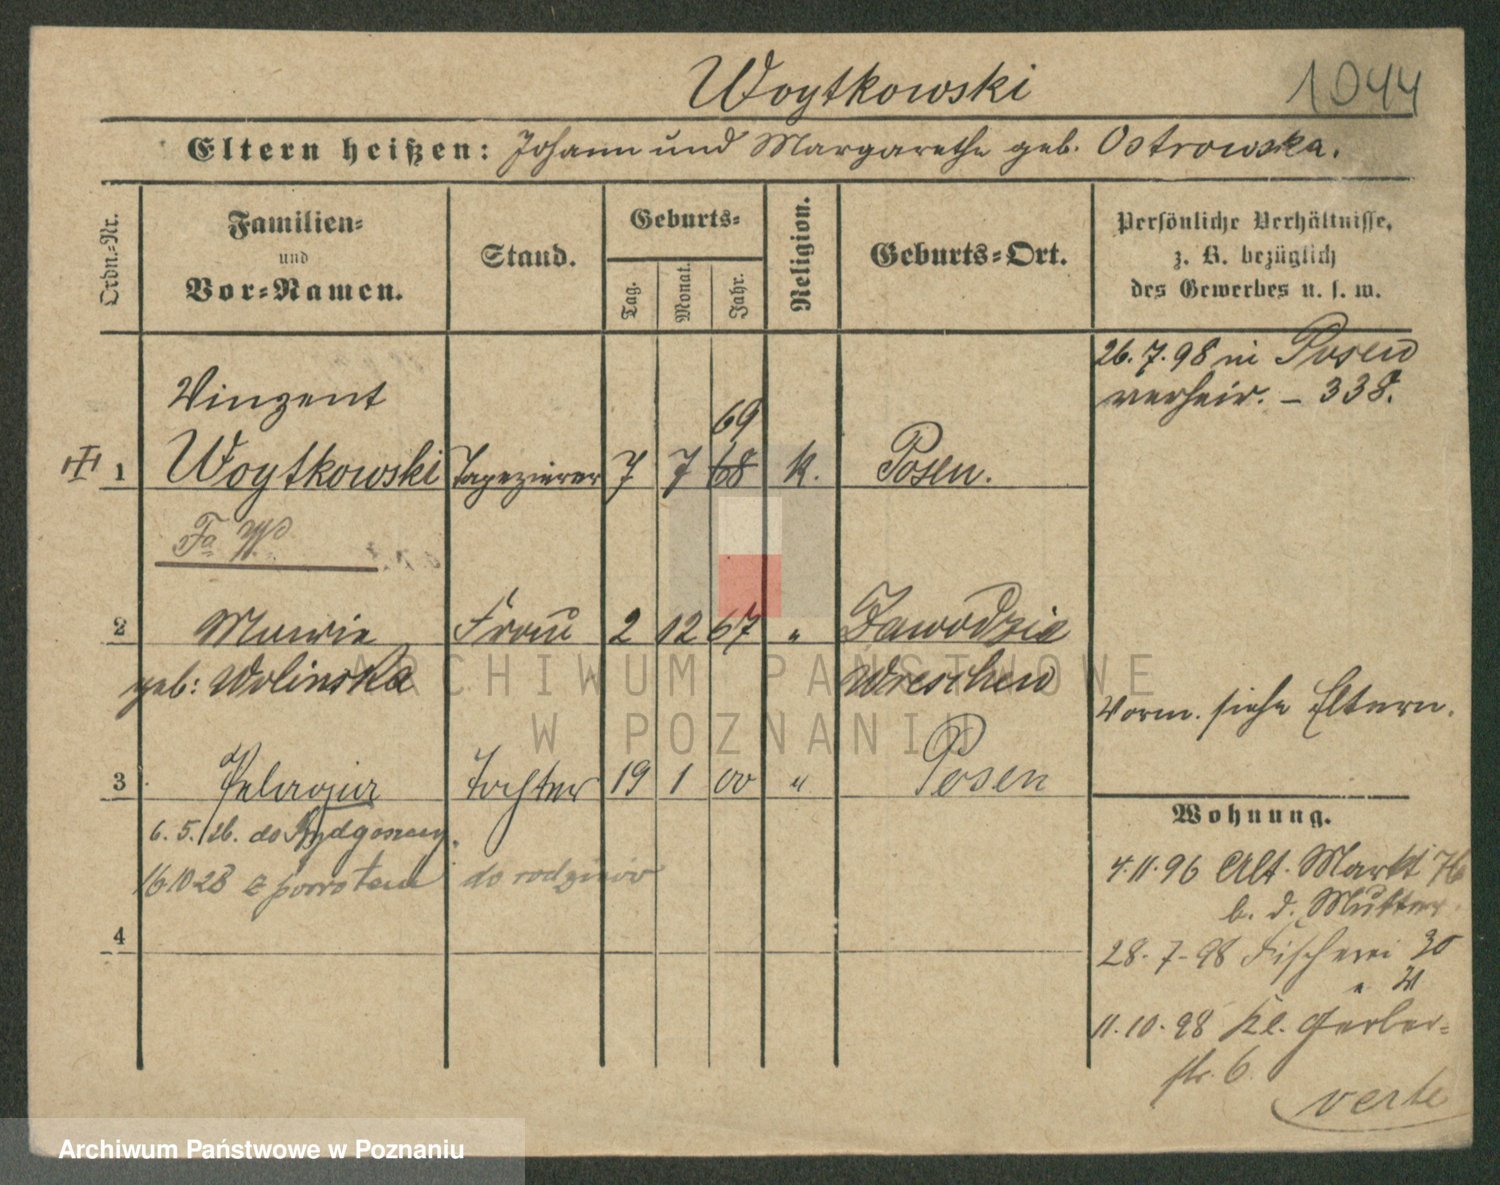 Woytkowski
1044
Eltern heißen: Johann und Margarethe geb. Ostrowska.
Ordn.-Nr.
Familien-
und
Vor-Namen.
Stand.
Geburts-
Tag.
Monat.
Jahr.
Religion.
Geburts-Ort.
Persönliche Verhältnisse,
z. B. bezüglich
des Gewerbes u. s. w.
26. 7. 98 in Posen
verheir. – 338.
Vinzent
69
1 Woytkowski Tapezierer 7 7 68 k. Posen.
Fa W
2 Marie Frau 2 12 67 " Zawodzie
geb: Wolinska Wreschen
Vorm. siehe Eltern.
3 Pelagia Tochter 19 1 00 " Posen
6. 5. 26. do Bydgoszczy.
16.10 28 z powrotem do rodziców
4
Wohnung.
4. 11. 96 Alt. Markt 76
b. d. Mutter
28. 7. 98 Fischerei 30
11. 10. 98 Kl. Gerber-
str. 6.
verte
ARCHIWUM PAŃSTWOWE
W POZNANIU
Archiwum Państwowe w Poznaniu